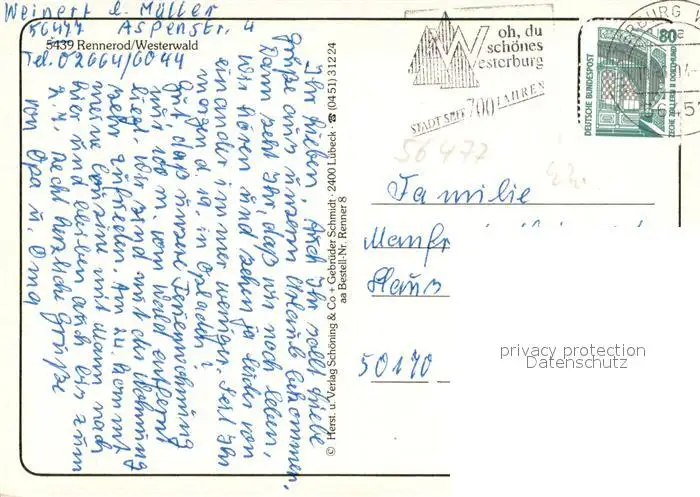 Weinert b. Müller
56477 Aspenstr. 4
5439 Rennerod/Westerwald
Tel. 02664/6044
Ihr Lieben, Auch Ihr sollt viele
Grüße aus unserm Urlaub bekommen,
Dann seht Ihr, daß wir noch leben,
Wir hören und sehen ja leider von
einander immer weniger. Seit Ihr
morgen a. in Opladen?
Gut, daß unsere Ferienwohnung
nur 100 m. vom Wald entfernt
liegt. Wir sind mit der Wohnung
sehr zufrieden. Am 24. kommt
meine Cousine mit Mann nach
hier und bleiben auch bis zum
Recht herzliche Grüße
von Opa u. Oma
© Herst. u. Verlag Schöning & Co + Gebrüder Schmidt · 2400 Lübeck · ☎ (04 51) 3 12 24
aa Bestell-Nr. Renner 8
oh, du
schönes
Westerburg
STADT SEIT 700 JAHREN
80
DEUTSCHE BUNDESPOST
ZECHE ZOLLERN II DORTMUND
56477
Familie
Manfr
Haus
50170
privacy protection
Datenschutz